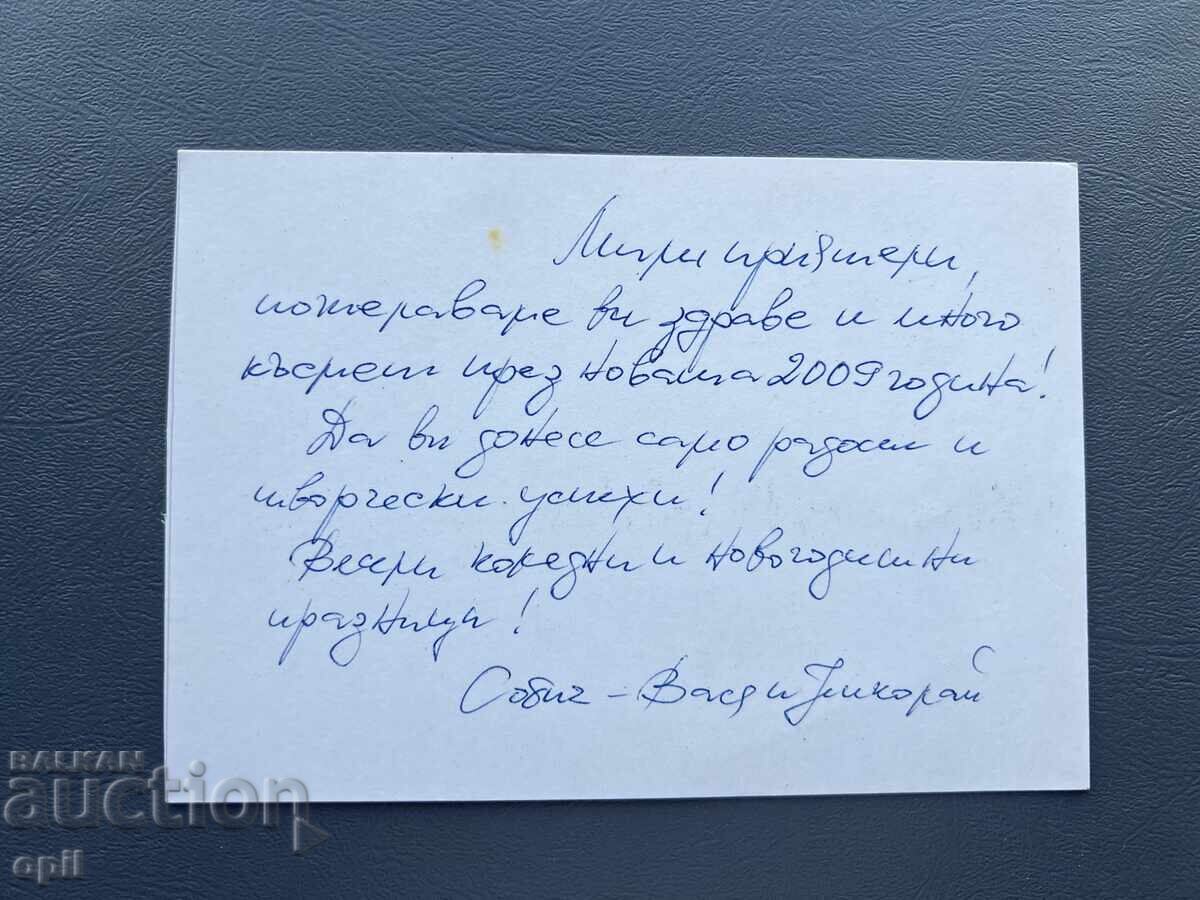 Мили приятели,
пожелаваме ви здраве и много
късмет през новата 2009 година!
Да ви донесе само радост и
творчески успехи!
Весели коледни и новогодишни
празници!
Васи и Николай
BALKAN
auction
opil